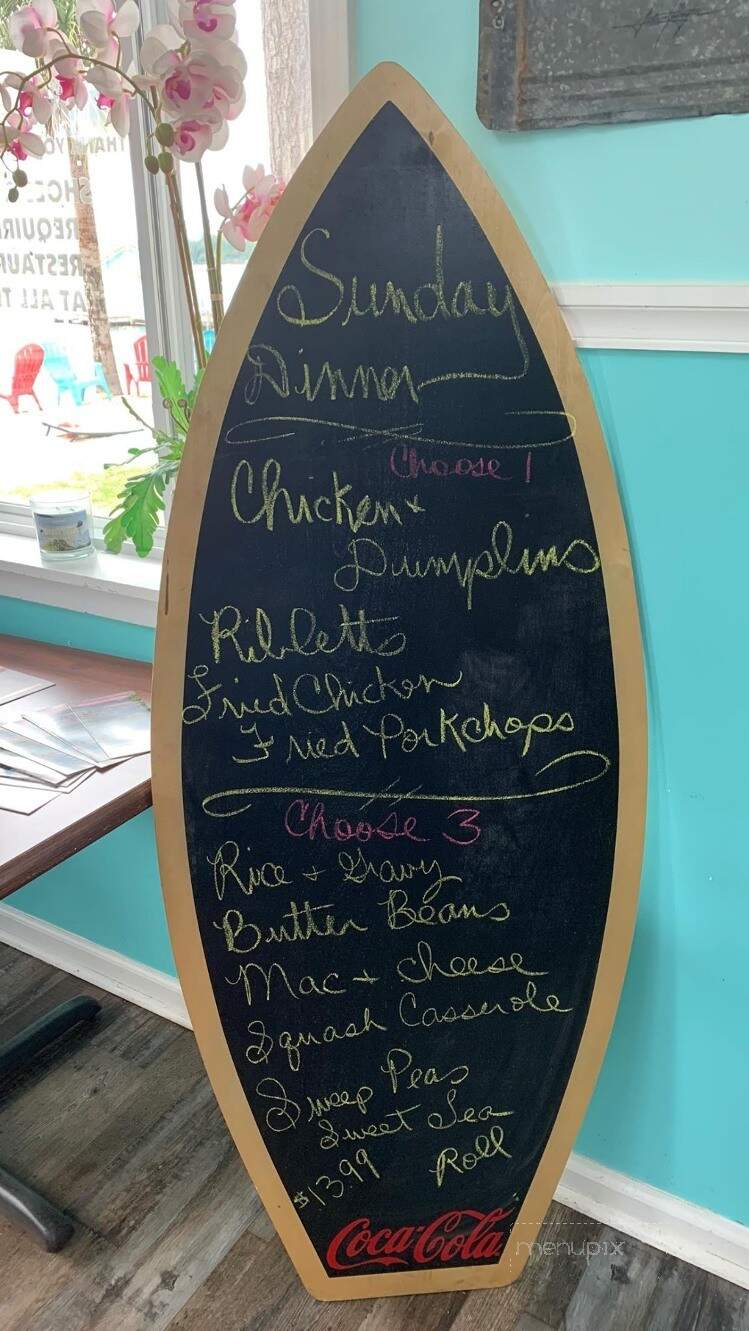 Sunday
Dinner
Choose 1
Chicken +
Dumplins
Ribletts
Fried Chicken
Fried Porkchops
Choose 3
Rice + Gravy
Butter Beans
Mac + cheese
Squash Casserole
Sweep Peas
Sweet Tea
$13.99 Roll
Coca-Cola
menupix
THANK YOU
SHOES
REQUIR
RESTAUR
AT ALL T